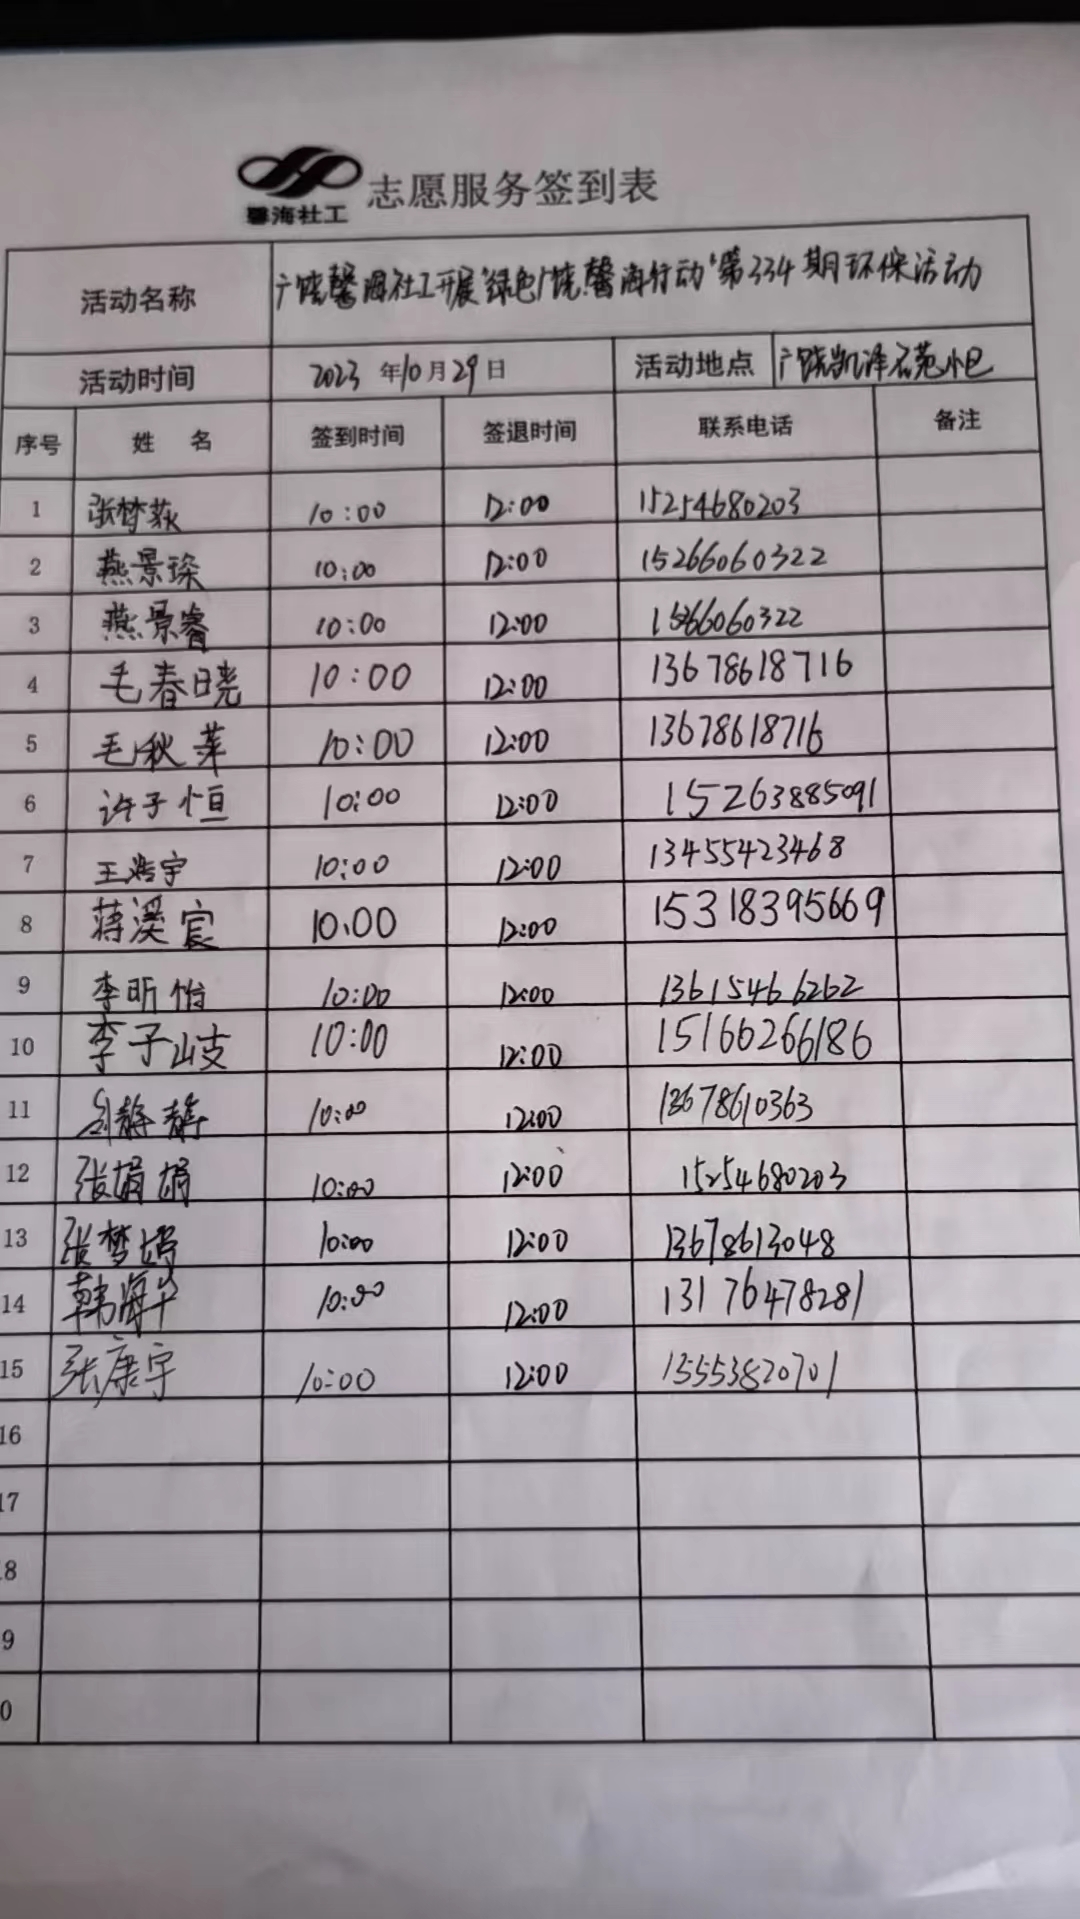 馨海社工 志愿服务签到表
活动名称 广饶馨海社工开展"绿色广饶.馨海行动"第334期环保活动
活动时间 2023年10月29日 活动地点 广饶凯泽名苑小区
序号 姓 名 签到时间 签退时间 联系电话 备注
1 张梦荻 10:00 12:00 15254680203
2 燕景琛 10:00 12:00 15266060322
3 燕景睿 10:00 12:00 15266060322
4 毛春晓 10:00 12:00 13678618716
5 毛秋苹 10:00 12:00 13678618716
6 许子恒 10:00 12:00 15263885091
7 王浩宇 10:00 12:00 13455423468
8 蒋溪宸 10:00 12:00 15318395669
9 李昕怡 10:00 12:00 13615466262
10 李子岐 10:00 12:00 15166266186
11 刘静静 10:00 12:00 13678610363
12 张娟娟 10:00 12:00 15254680203
13 张梦娇 10:00 12:00 13678613048
14 韩海华 10:00 12:00 13176478281
15 张康宇 10:00 12:00 15553820701
16
17
8
9
0